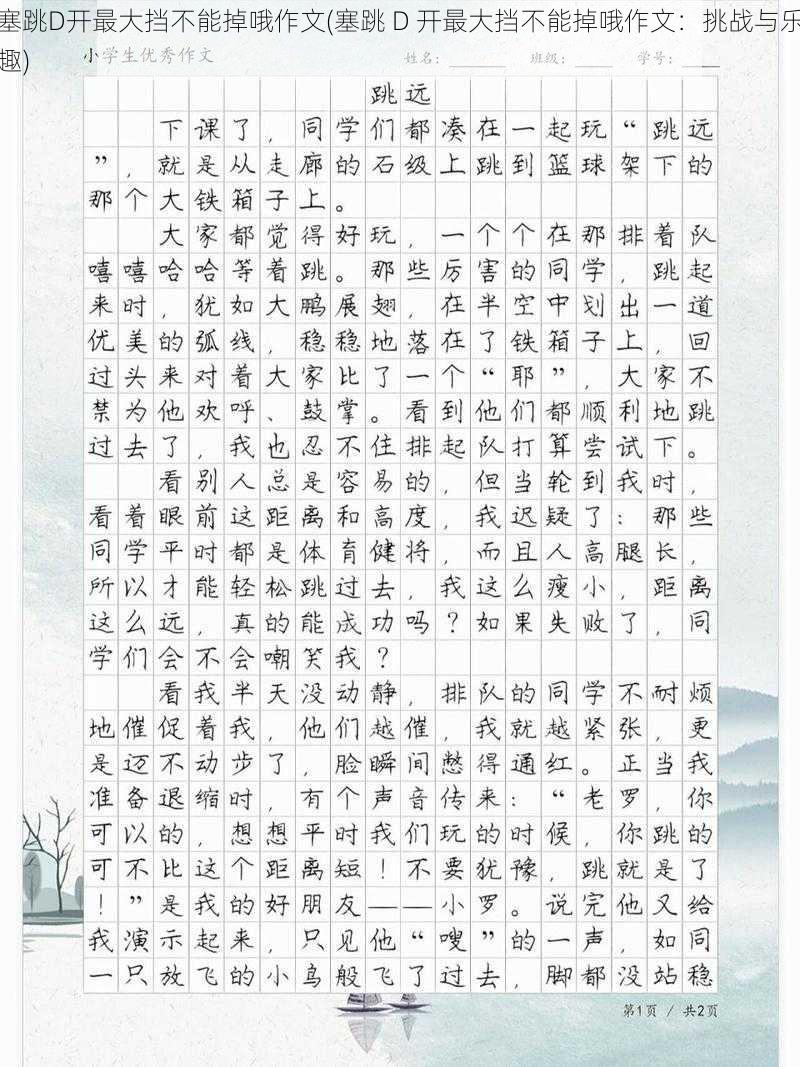 塞跳D开最大挡不能掉哦作文(塞跳 D 开最大挡不能掉哦作文：挑战与乐
趣)
小学生优秀作文 姓名： 班级： 学号：
跳远
下课了，同学们都凑在一起玩“跳远
”，就是从走廊的石级上跳到篮球架下的
那个大铁箱子上。
大家都觉得好玩，一个个在那排着队
嘻嘻哈哈等着跳。那些厉害的同学，跳起
来时，犹如大鹏展翅，在半空中划出一道
优美的弧线，稳稳地落在了铁箱子上，回
过头来对着大家比了一个“耶”，大家不
禁为他欢呼、鼓掌。看到他们都顺利地跳
过去了，我也忍不住排起队打算尝试下。
看别人总是容易的，但当轮到我时，
看着眼前这距离和高度，我迟疑了：那些
同学平时都是体育健将，而且人高腿长，
所以才能轻松跳过去，我这么瘦小，距离
这么远，真的能成功吗？如果失败了，同
学们会不会嘲笑我？
看我半天没动静，排队的同学不耐烦
地催促着我，他们越催，我就越紧张，更
是迈不动步了，脸瞬间憋得通红。正当我
准备退缩时，有个声音传来：“老罗，你
可以的，想想平时我们玩的时候，你跳的
可不比这个距离短！不要犹豫，跳就是了
！”是我的好朋友——小罗。说完他又给
我演示起来，只见他“嗖”的一声，如同
一只放飞的小鸟般飞了过去，脚都没站稳
第1页 / 共2页